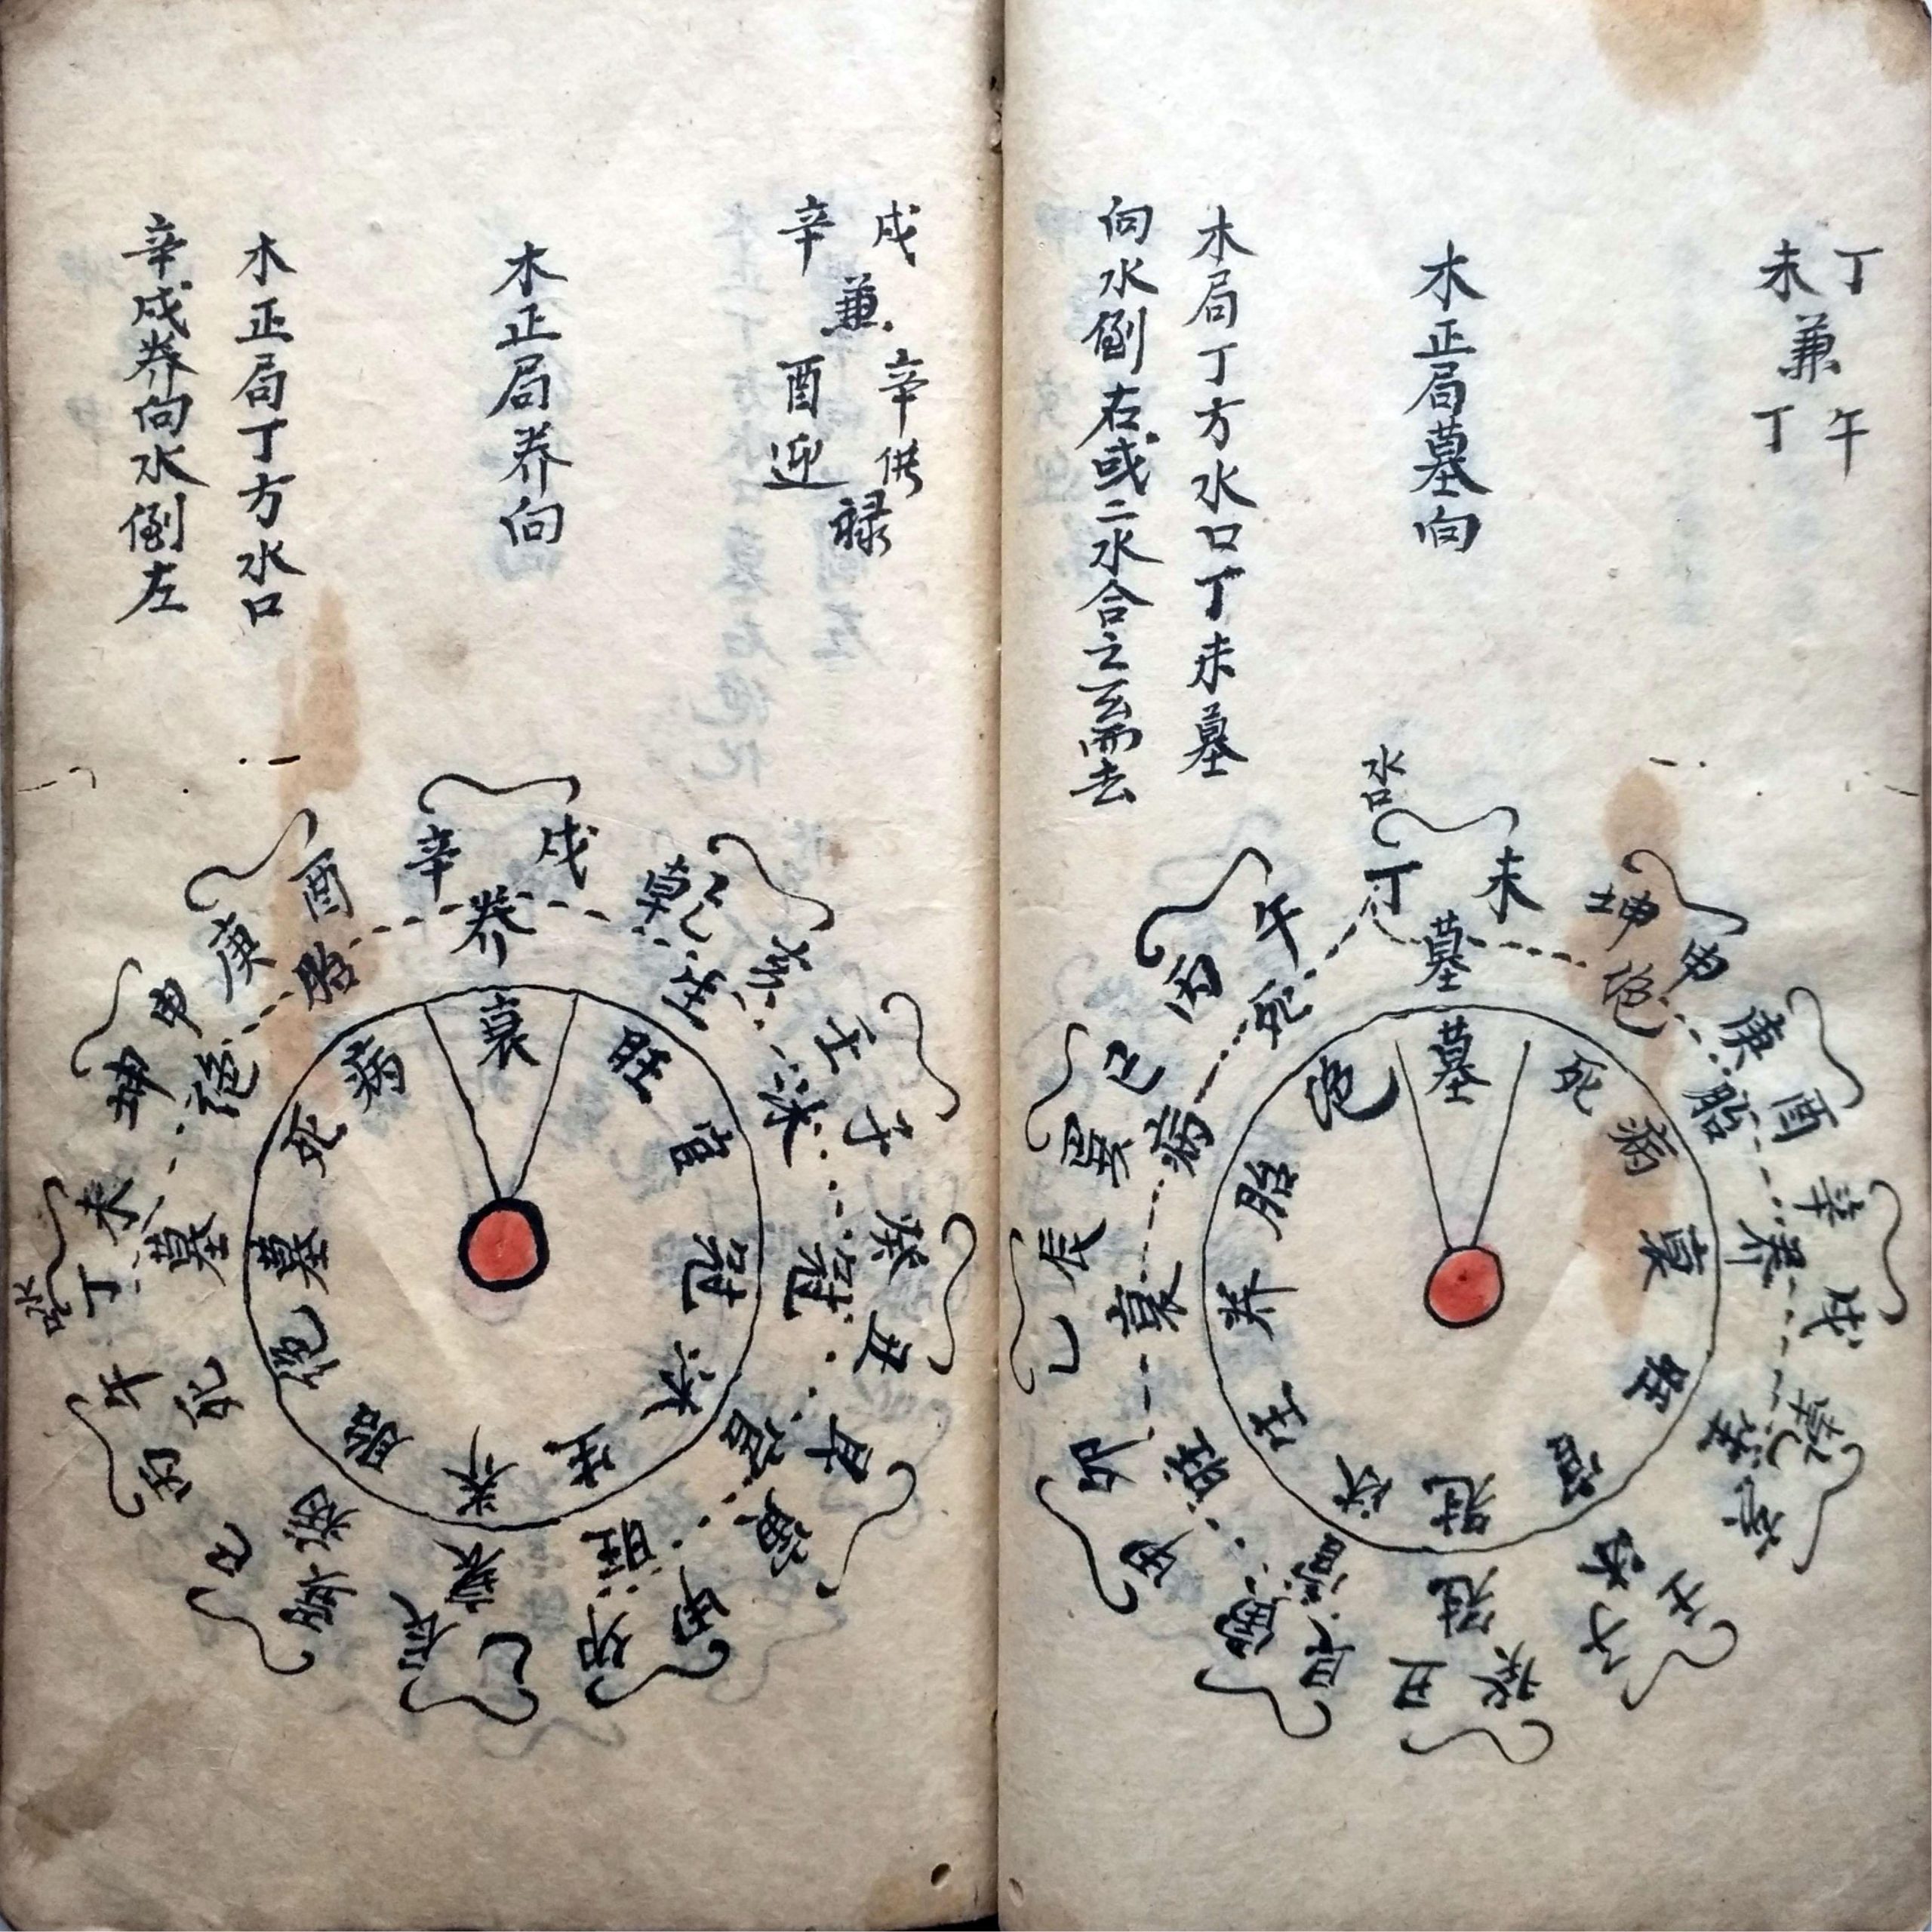 丁 午
未 兼 丁
木正局墓向
木局丁方水口丁未墓
向水倒右或二水合之玄而去
水口
丁 未
坤 申
庚 酉
辛 戌
乾 亥
壬 子
癸 丑
艮 寅
甲 卯
乙 辰
巽 巳
丙 午
墓 絕 胎 养 生 沐 冠 官 旺 衰 病 死
墓 死 病 衰 旺 官 冠 沐 生 养 胎 绝
戌 辛 供
兼 禄
辛 酉 迎
木正局养向
木正局丁方水口
辛戌养向水倒左
辛 戌
乾 亥
壬 子
癸 丑
艮 寅
甲 卯
乙 辰
巽 巳
丙 午
丁 未
水口
坤 申
庚 酉
养 生 沐 冠 官 旺 衰 病 死 墓 绝 胎
衰 旺 官 冠 沐 生 养 胎 绝 墓 死 病